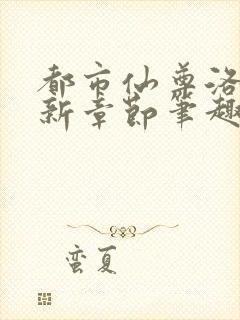 都市仙尊洛
新章节笔趣
蛮夏